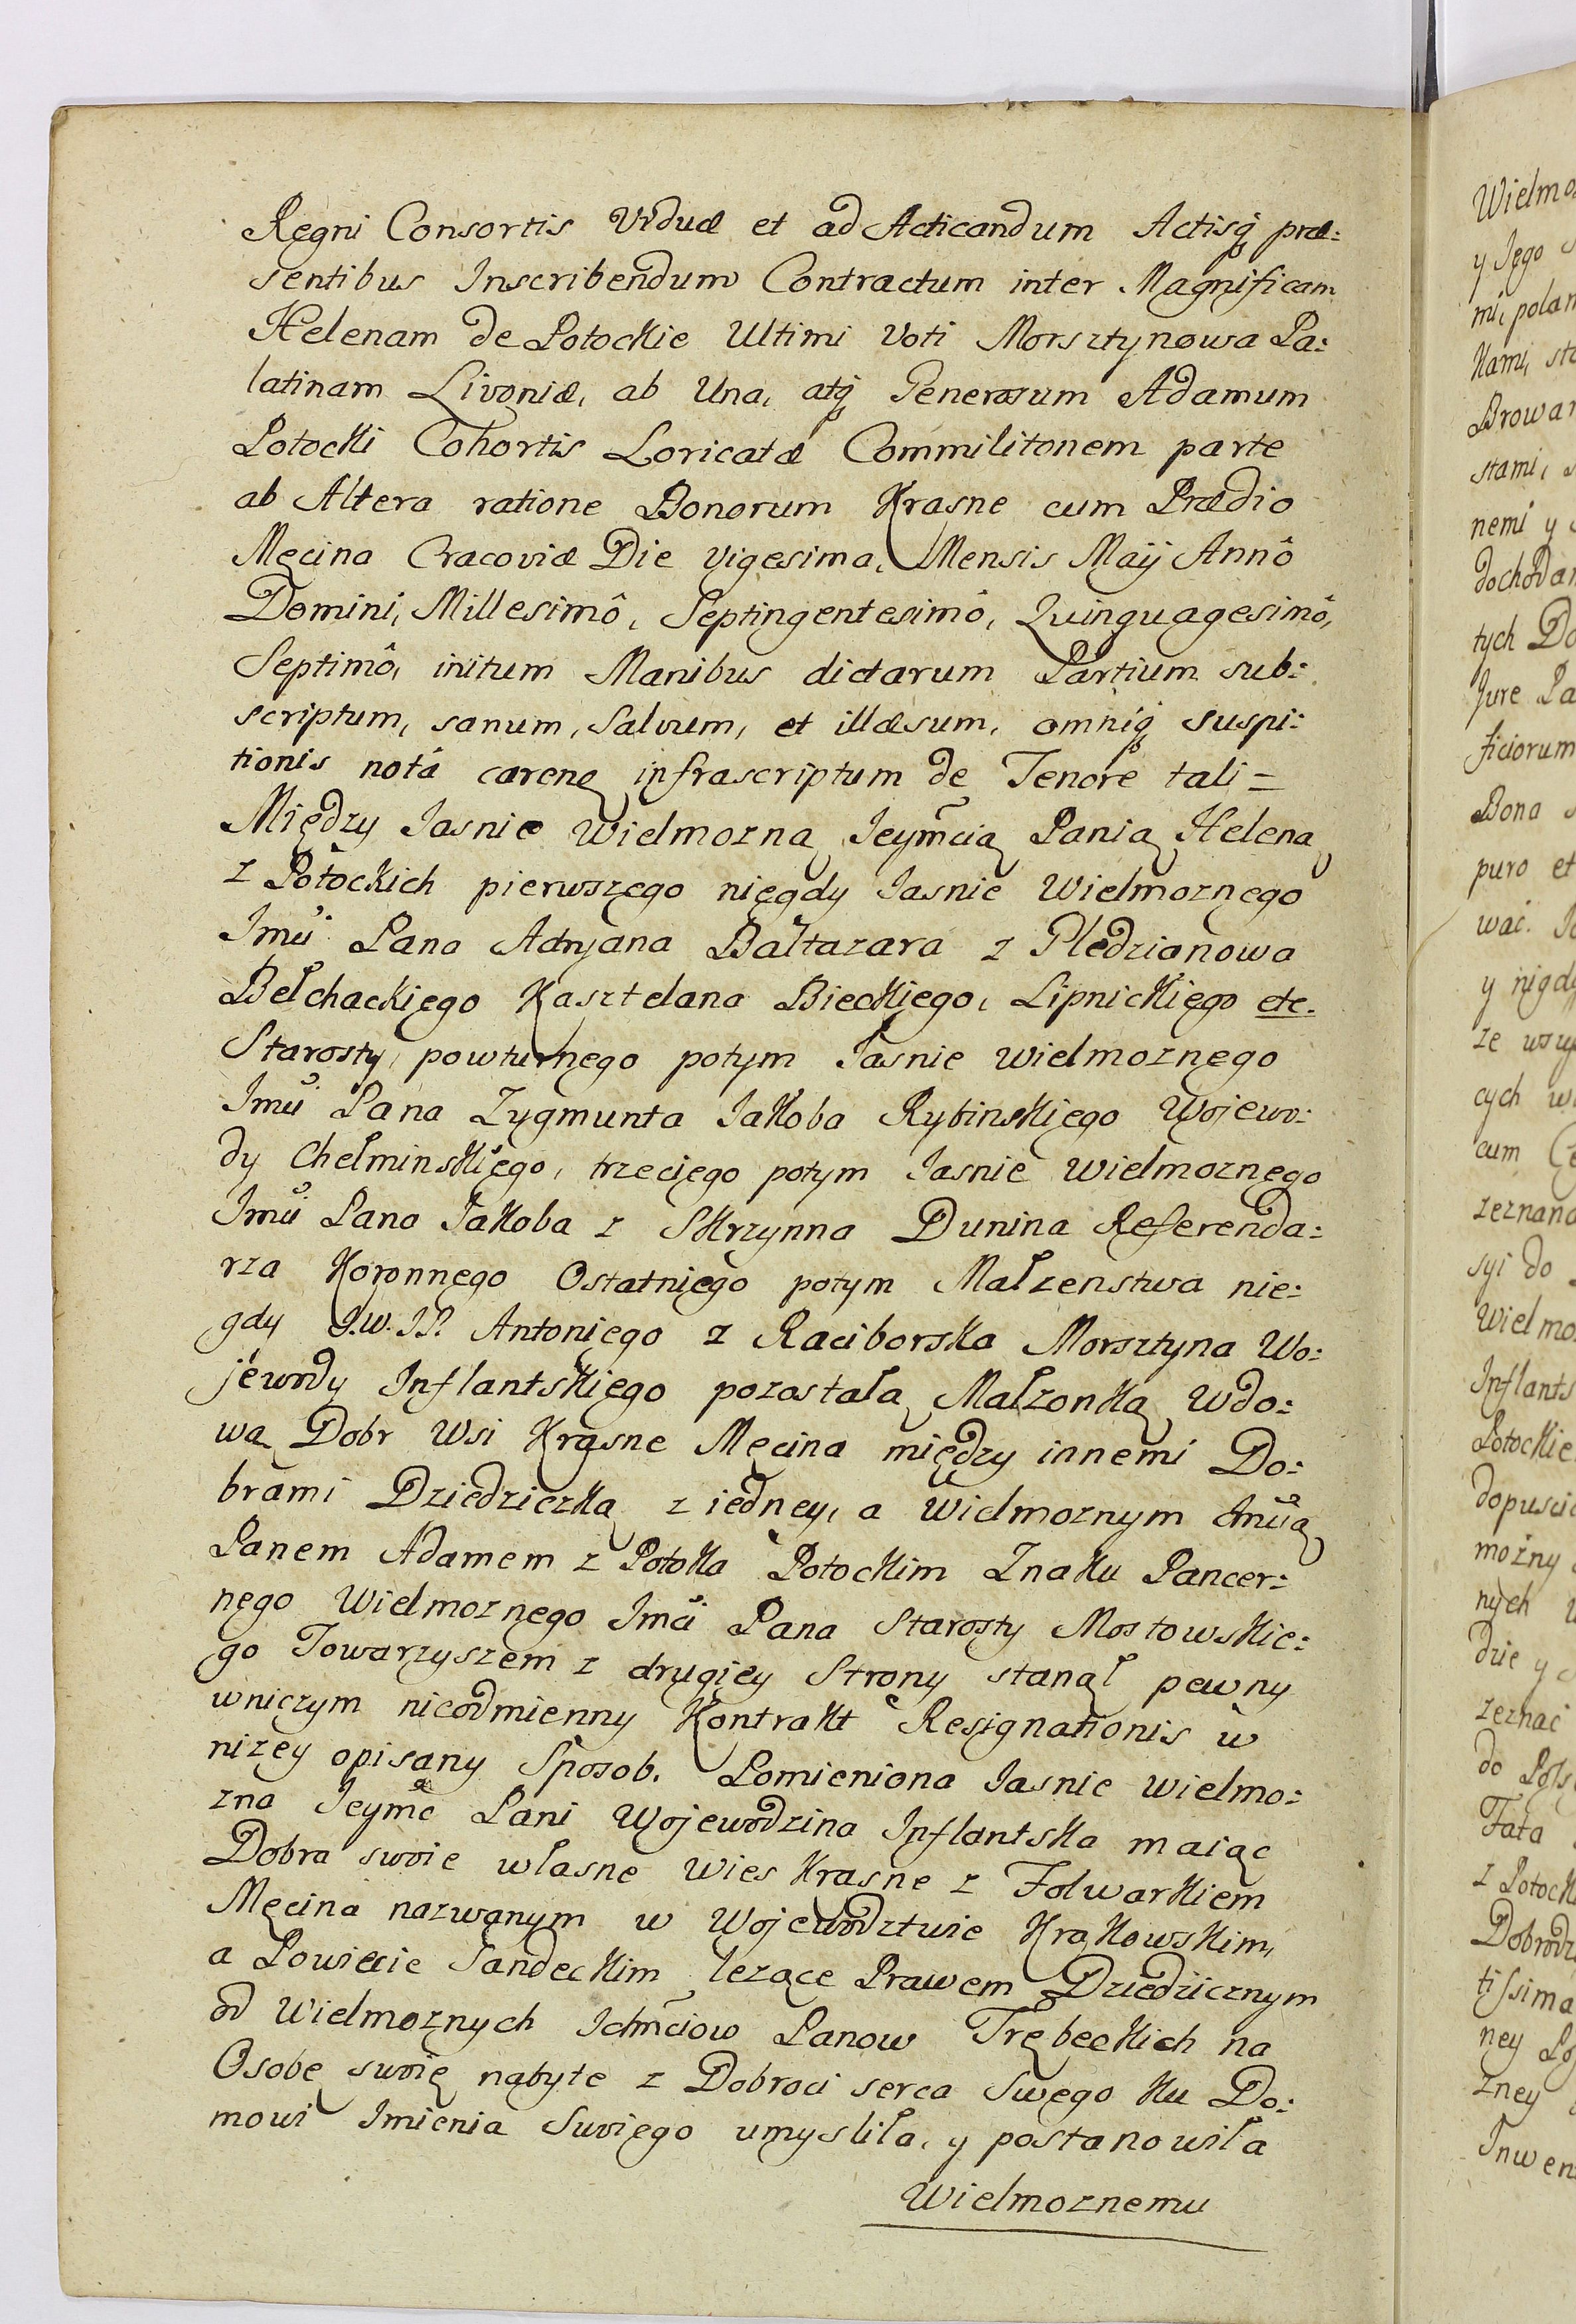 Regni Consortis Viduæ et ad Acticandum Actisq́ præ:
sentibus Inscribendum Contractum inter Magnificam
Helenam de Potockie Ultimi Voti Morsztynowa Pa:
latinam Livoniæ, ab Una, atq́ Generosum Adamum
Potocki Cohortis Loricatæ Commilitonem parte
ab Altera ratione Bonorum Krasne cum Prædio
Męcina Cracoviæ Die vigesima, Mensis Maÿ Annô
Domini, Millesimô, Septingentesimô, Quinquagesimô,
Septimô, initum Manibus dictarum Partium sub:
scriptum, sanum, Salvum, et illæsum, omniq́ suspi:
tionis notâ carens infrascriptum de Tenore tali =
Między Jasnie Wielmozną Jeym̃cią Panią Heleną
z Potockich pierwszego niegdy Jasnie Wielmoznego
Imci Pana Adryana Baltazara z Pledzianowa
Bełchackiego Kasztelana Bieckiego, Lipnickiego etc.
Starosty, powturnego potym Jasnie wielmoznego
Imci Pana Zygmunta Jakoba Rybinskiego Wojewo:
dy Chełminskiego, trzeciego potym Jasnie wielmoznego
Imci Pana Jakoba z Skrzynna Dunina Referenda:
rza Koronnego Ostatniego potym Małzenstwa nie:
gdy J.W.JP. Antoniego z Raciborska Morsztyna Wo:
jewody Inflantskiego pozostałą Małzonką Wdo:
wą Dobr Wsi Krasne Męcina między innemi Do:
brami Dziedziczką z iedney, a Wielmoznym Imcią
Panem Adamem z Potoka Potockim Znaku Pancer:
nego Wielmoznego Imci Pana Starosty Mostowskie:
go Towarzyszem z drugiey Strony stanął pewny
wniczym nieodmienny Kontrakt Resignationis w
nizey opisany Sposob. Pomieniona Jasnie wielmo:
zna Jeymc̃ Pani Wojewodzina Inflantska maiąc
Dobra swoie własne wies Krasne z Folwarkiem
Męcina nazwanym w Wojewodztwie Krakowskim,
a Powiecie Sandeckim lezące Prawem Dziedzicznym
od Wielmoznych Ichm̃ciow Panow Trębeckich na
Osobę swoię nabyte z Dobroci serca Swego ku Do:
mowi Imienia Swoiego umysliła, y postanowiła
Wielmoznemu